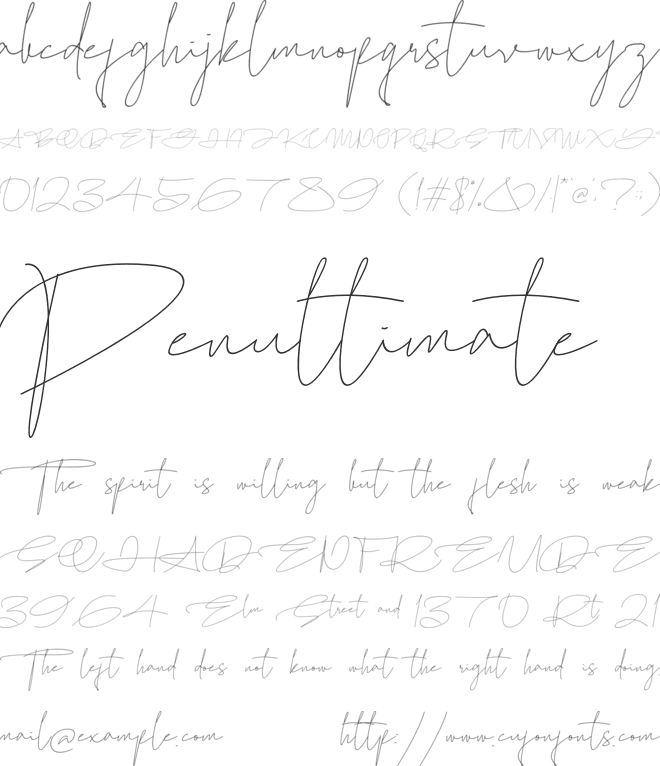 abcdefghijklmnopqrstuvwxyz
ABCDEFGHIJKLMNOPQRSTUVWXYZ
0123456789 (!#$%&/|*"@';?:;)
Penultimate
The spirit is willing but the flesh is weak
SCHADENFREUDE
3964 Elm Street and 1370 Rt 21
The left hand does not know what the right hand is doing.
mail@example.com http://www.cufonfonts.com